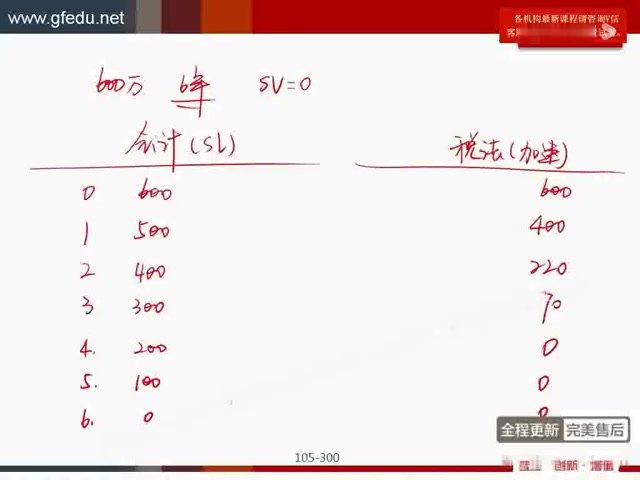 www.gfedu.net
各机构最新课程请咨询V信
600万 6年 SV=0
会计(SL) 税法(加速)
0 600 600
1 500 400
2 400 220
3 300 70
4. 200 0
5. 100 0
6. 0 0
全程更新 完美售后
105-300
创新·增值